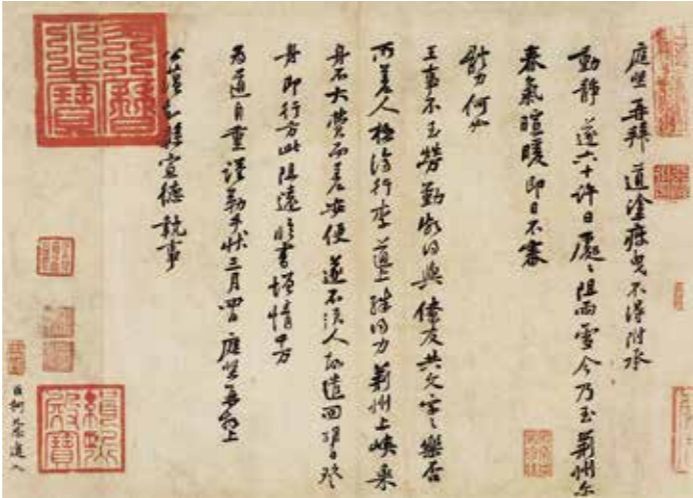 庭堅再拜道塗疲曳不得附承
動靜遂六十許日處〻阻雨雪今乃至荊州尔
春氣暄暖即日不審
體力何如
王事不至勞勤頗得與僚友共文字之樂否
所差人極濟行李道上殊得力荊州上峽乘
舟不大費而差安便遂不須人故遣回日登
舟即行方此阻遠臨書增情千万
為道自重謹勒手狀三月四日庭堅再拜上
公蘊知縣宣德執事
緝熙殿寶